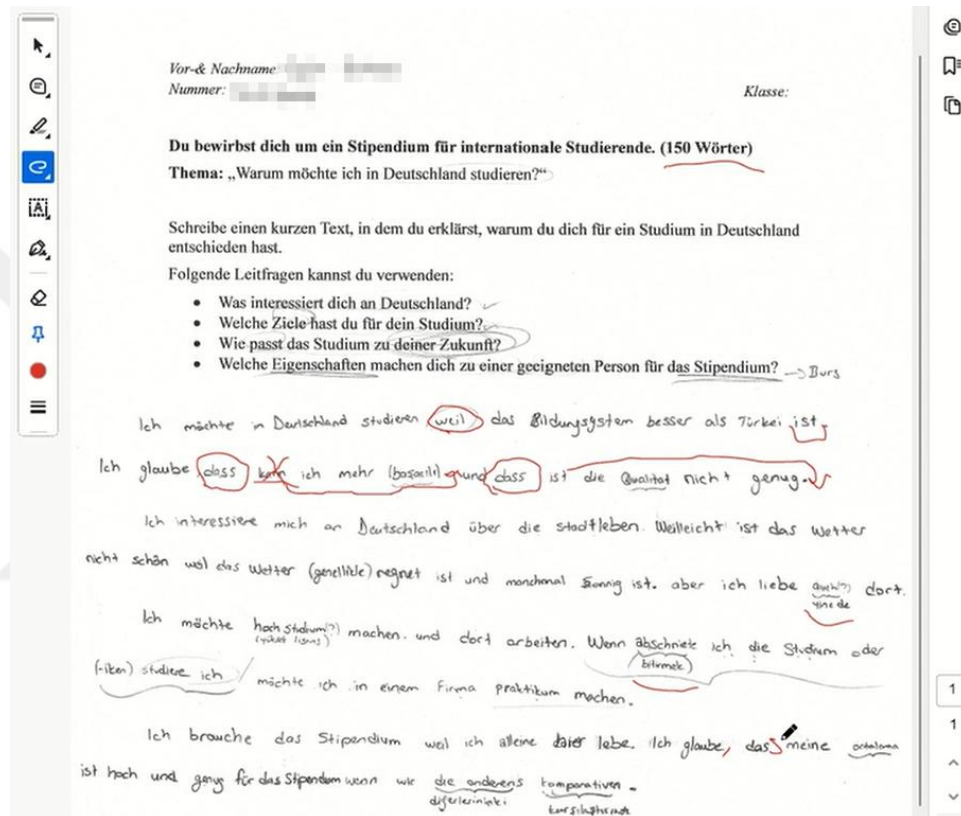 Vor-& Nachname
Nummer:
Klasse:
Du bewirbst dich um ein Stipendium für internationale Studierende. (150 Wörter)
Thema: „Warum möchte ich in Deutschland studieren?“
Schreibe einen kurzen Text, in dem du erklärst, warum du dich für ein Studium in Deutschland
entschieden hast.
Folgende Leitfragen kannst du verwenden:
• Was interessiert dich an Deutschland?
• Welche Ziele hast du für dein Studium?
• Wie passt das Studium zu deiner Zukunft?
• Welche Eigenschaften machen dich zu einer geeigneten Person für das Stipendium? → Burs
Ich möchte in Deutschland studieren weil das Bildungsystem besser als Türkei ist.
Ich glaube dass kann ich mehr (başarılı) grund dass ist die Qualitat nicht genug.
Ich interessiere mich an Deutschland über die stadtleben. Weilleicht ist das wetter
nicht schön weil das Wetter (genellikle) regnet ist und manchmal sonnig ist. aber ich liebe dort.
yine de
Ich möchte hoch studium(?) machen. und dort arbeiten. Wenn abschniete ich die Studium oder
(yüksek lisans)
bitirmek
(-iken) studiere ich möchte ich in einem Firma praktikum machen.
Ich brauche das Stipendium weil ich alleine lebe. Ich glaube, das meine ortalama
ist hoch und genug für das Stipendum wenn wir die anderens komparativen.
diğerlerininki
karşılaştırmak
1
1